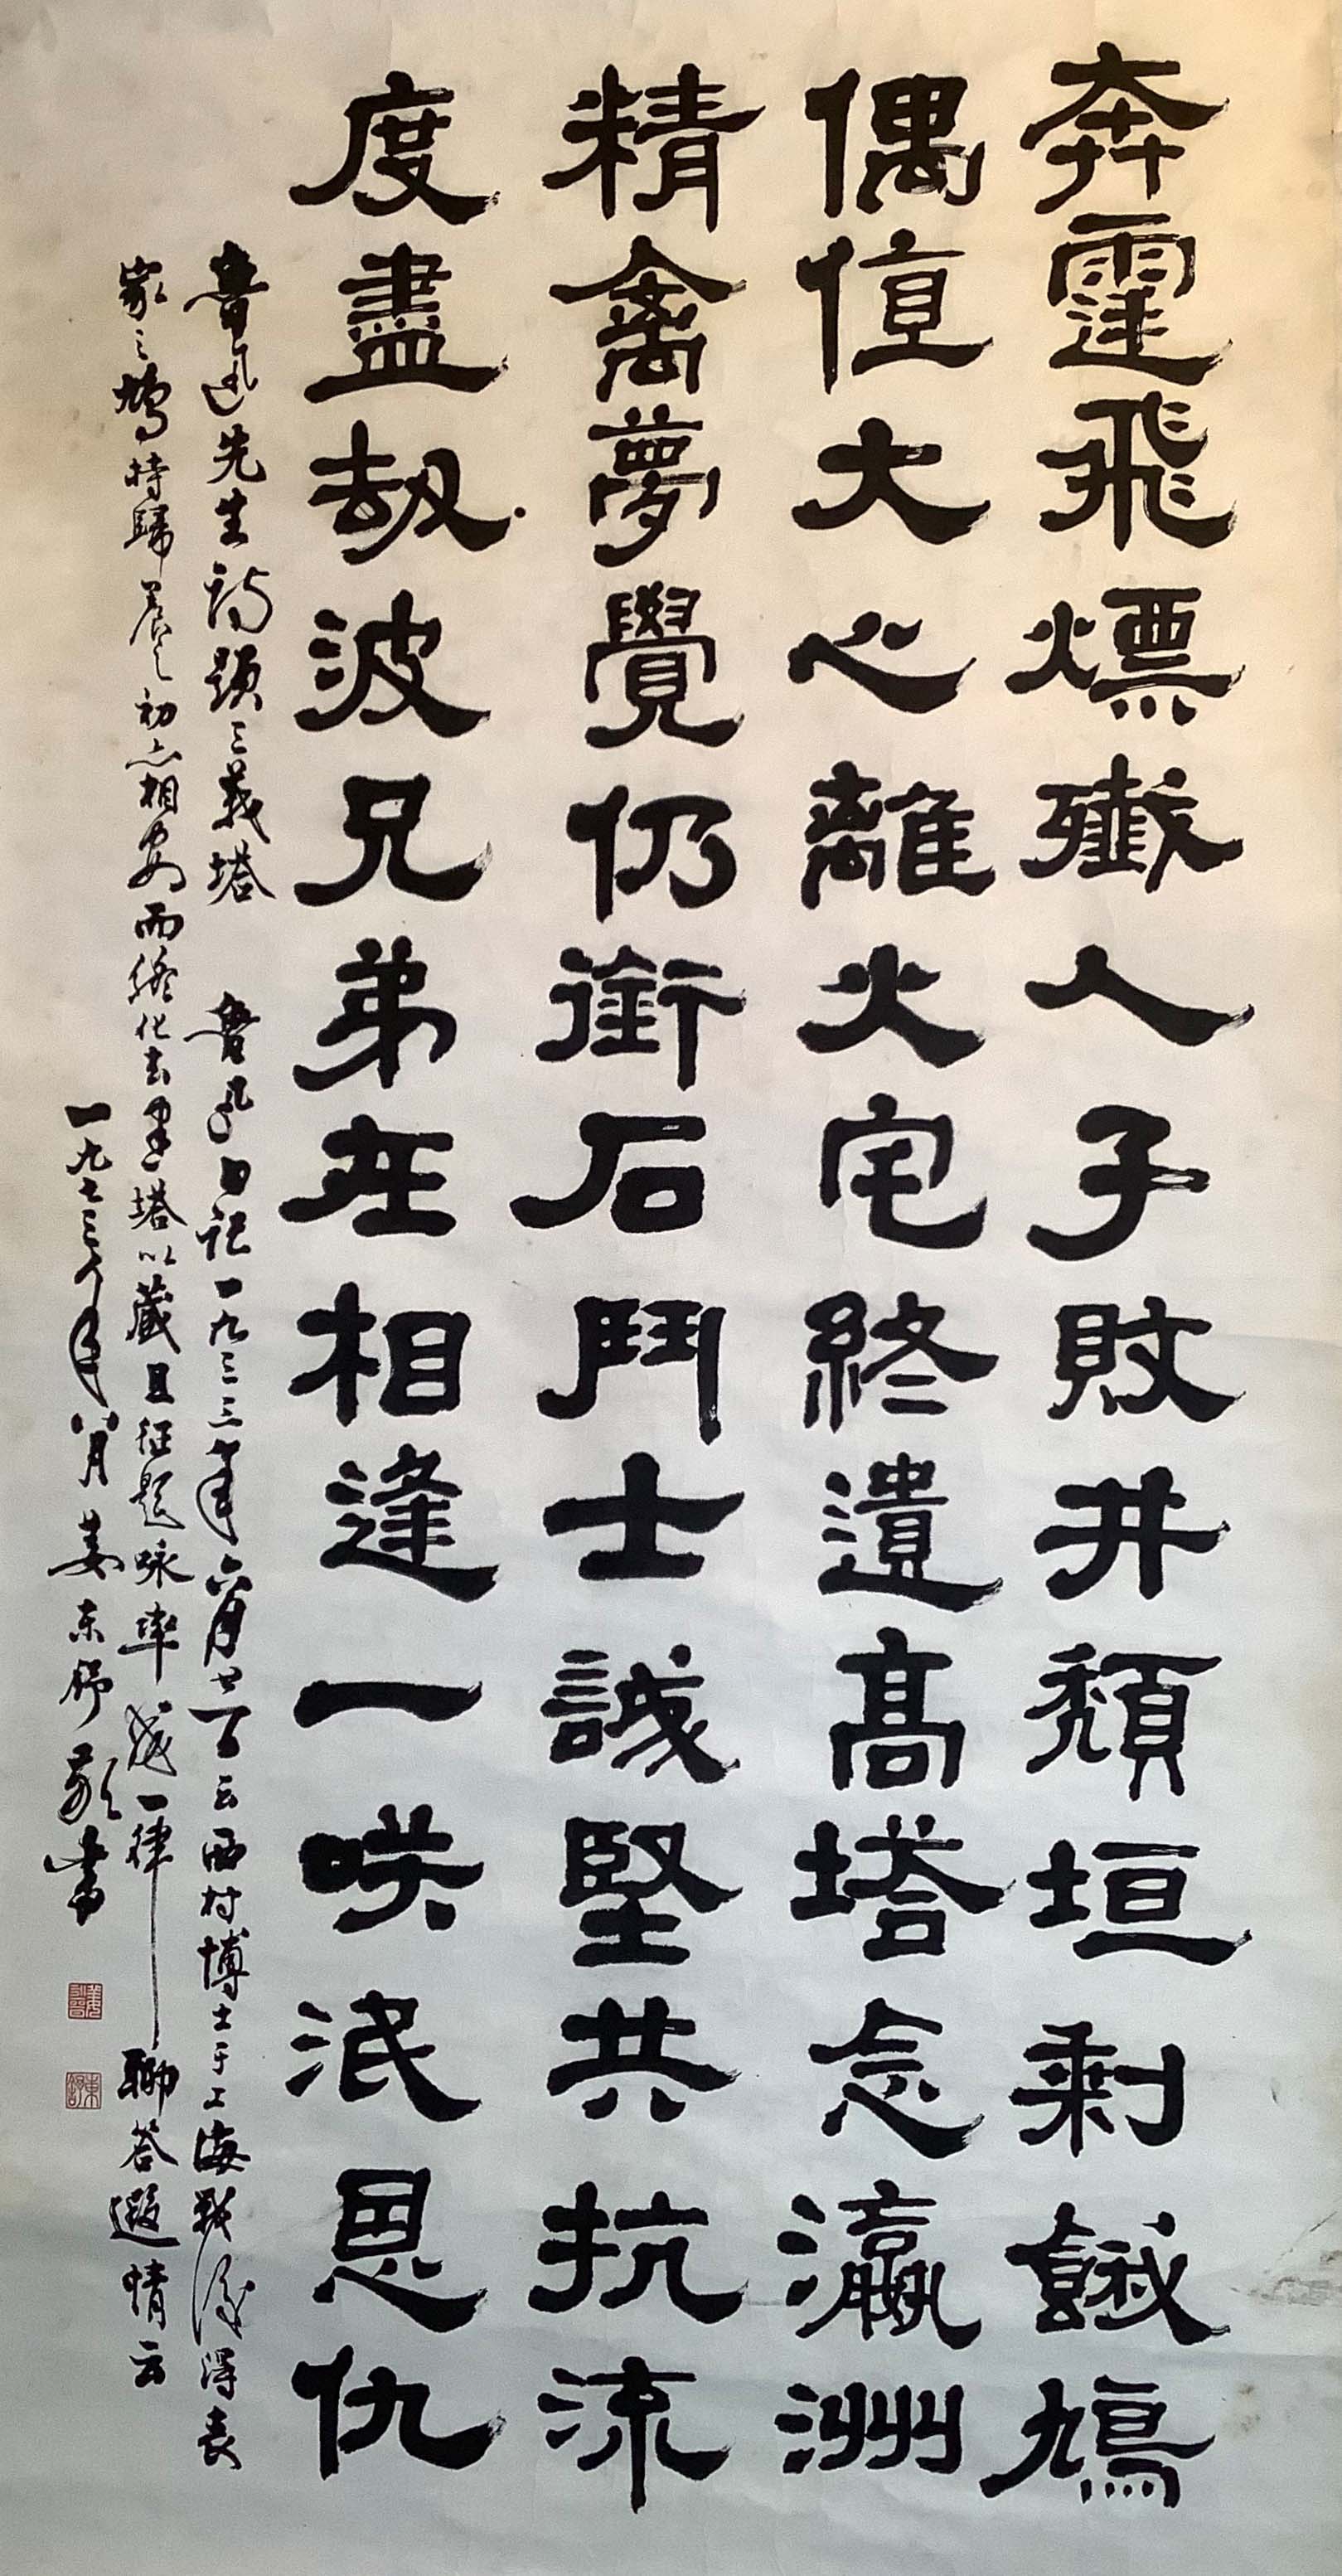 奔霆飛熛殲人子敗井頽垣剩餓鳩
偶值大心離火宅終遺高塔念瀛洲
精禽夢覺仍銜石鬥士誠堅共抗流
度盡劫波兄弟在相逢一咲泯恩仇
魯迅先生詩題三義塔 魯迅日記一九三三年六月廿一日云西村博士于上海戰後得喪
家之鳩持歸養之初亦相安而終化去建塔以藏且征題咏率成一律聊答遐情云
一九七三年八月姜東舒敬書
東舒